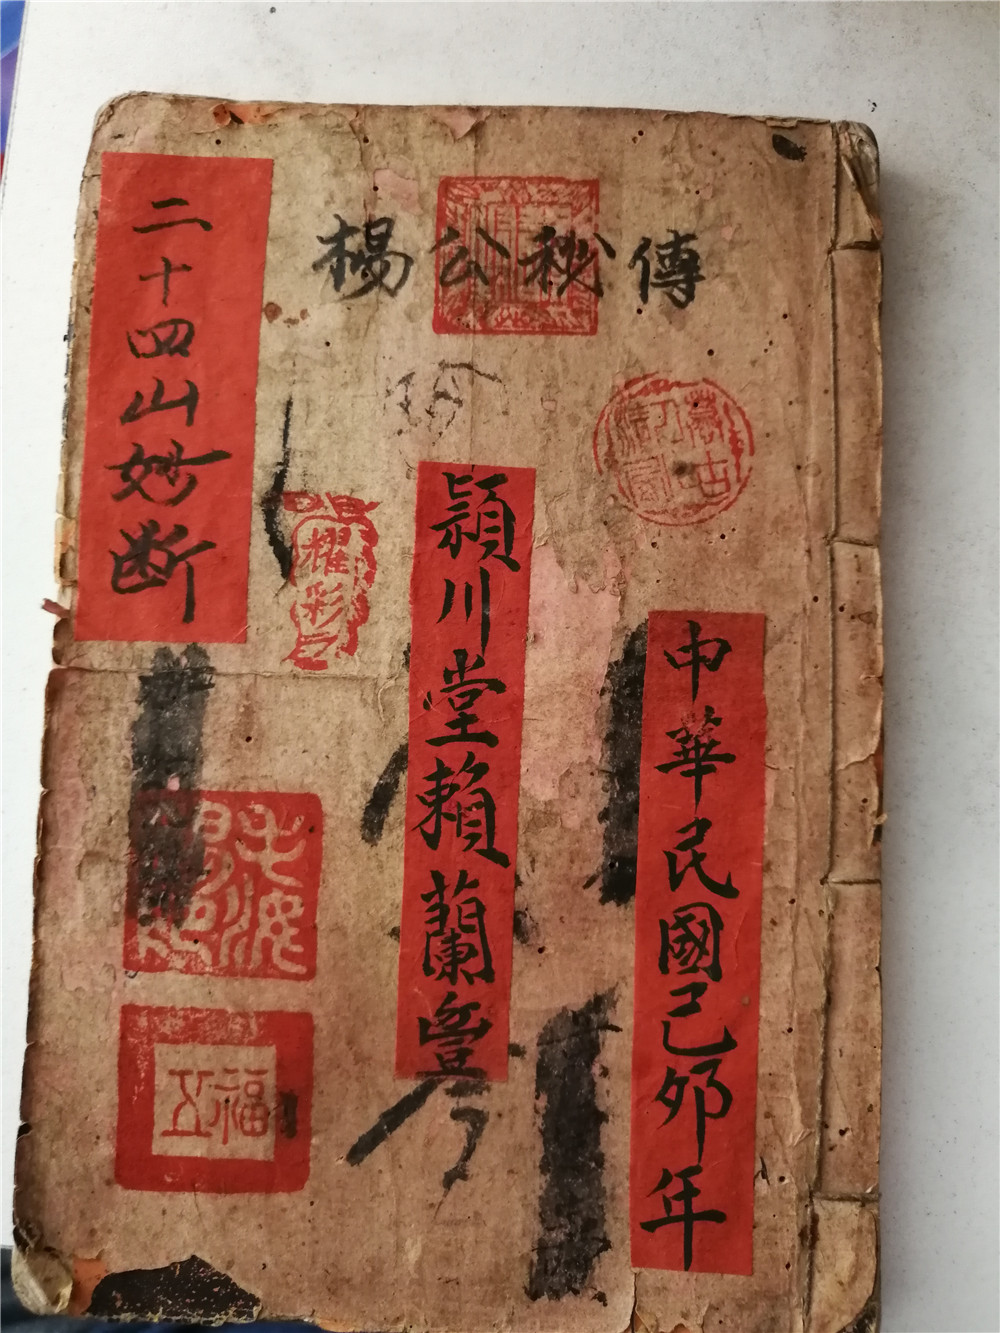 楊公秘傳
二十四山妙断
頴川堂賴蘭岺
中華民國己夘年
耀彩
福